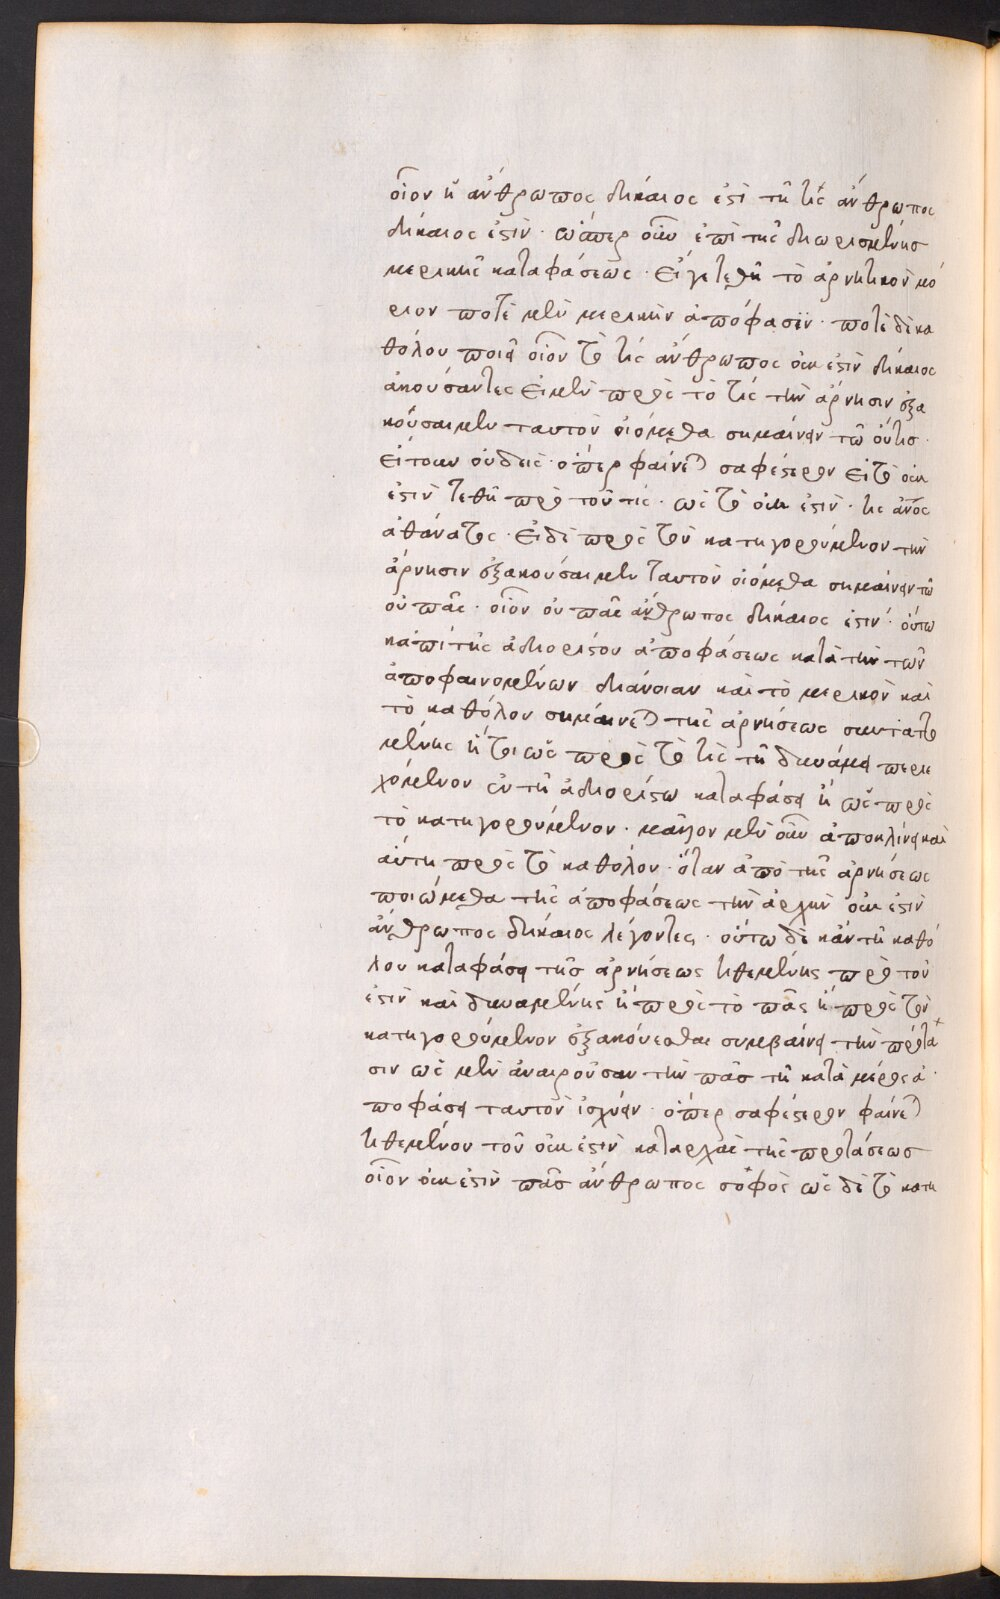 οἷον ἢ ἄνθρωπος δίκαιος ἐστὶ τῇ τὶς ἄνθρωπος
δίκαιος ἐστὶν· ὥσπερ οὖν ἐπὶ τῆς διωρισμένης
μερικῆς καταφάσεως· εἴγε τεθῇ τὸ ἀρνητικὸν μό
ριον ποτὲ μὲν μερικὴν ἀπόφασιν· ποτὲ δὲ κα
θόλου ποιεῖ οἷον τὸ τὶς ἄνθρωπος οὐκ ἐστὶν δίκαιος
ἀκούσαντες εἰ μὲν πρὸς τὸ τὶς τὴν ἄρνησιν ἐξα
κούσαιμεν ταυτὸν οἰόμεθα σημαίνειν τῷ οὔτις·
εἴτουν οὐδεὶς· ὅπερ φαίνεται σαφέστερον εἰ τὸ οὐκ
ἐστὶν τεθῇ πρὸ τοῦ τίς· ὡς τὸ οὐκ ἐστὶν· τις ἄνος
ἀθάνατος· εἰ δὲ πρὸς τὸν κατηγορούμενον τὴν
ἄρνησιν ἐξακούσαιμεν ταυτὸν οἰόμεθα σημαίνειν τῷ
οὐ πᾶς· οἷον οὐ πᾶς ἄνθρωπος δίκαιος ἐστίν· οὕτω
κἀπὶ τῆς ἀδιορίστου ἀποφάσεως κατὰ τὴν τῶν
ἀποφαινομένων διάνοιαν καὶ τὸ μερικὸν καὶ
τὸ καθόλου σημαίνεται τῆς ἀρνήσεως συνταττο
μένης ἤτοι ὡς πρὸς τὸ τὶς τῇ δυνάμει περιε
χόμενον ἐν τῇ ἀδιορίστω καταφάσει ἢ ὡς πρὸς
τὸ κατηγορούμενον· μᾶλλον μὲν οὖν ἀποκλίνει καὶ
αὕτη πρὸς τὸ καθόλου· ὅταν ἀπὸ τῆς ἀρνήσεως
ποιώμεθα τῆς ἀποφάσεως τὴν ἀρχὴν οὐκ ἐστὶν
ἄνθρωπος δίκαιος λέγοντες· οὕτω δὲ κἂν τῇ καθό
λου καταφάσει τῆς ἀρνήσεως τιθεμένης πρὸ τοῦ
ἐστὶν καὶ δυναμένης ἢ πρὸς τὸ πᾶς ἢ πρὸς τὸν
κατηγορούμενον ἐξακούεσθαι συμβαίνει τὴν πρότα
σιν ὡς μὲν ἀναιροῦσαν τὴν πᾶς τῇ κατὰ μέρος ἀ
ποφάσει ταυτὸν ἰσχύειν· ὅπερ σαφέστερον φαίνεται
τιθεμένου τοῦ οὐκ ἐστὶν καταρχὰς τῆς προτάσεως
οἷον οὐκ ἐστὶν πᾶς ἄνθρωπος σοφὸς ὡς δὲ τὸ κατη